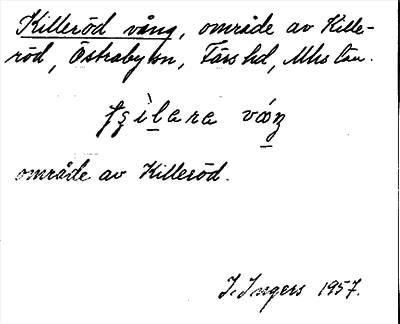 Killeröd vång, område av Kille-
röd, Östraby sn, Färs hd, Mlhs län.
område av Killeröd.
I. Ingers 1957.